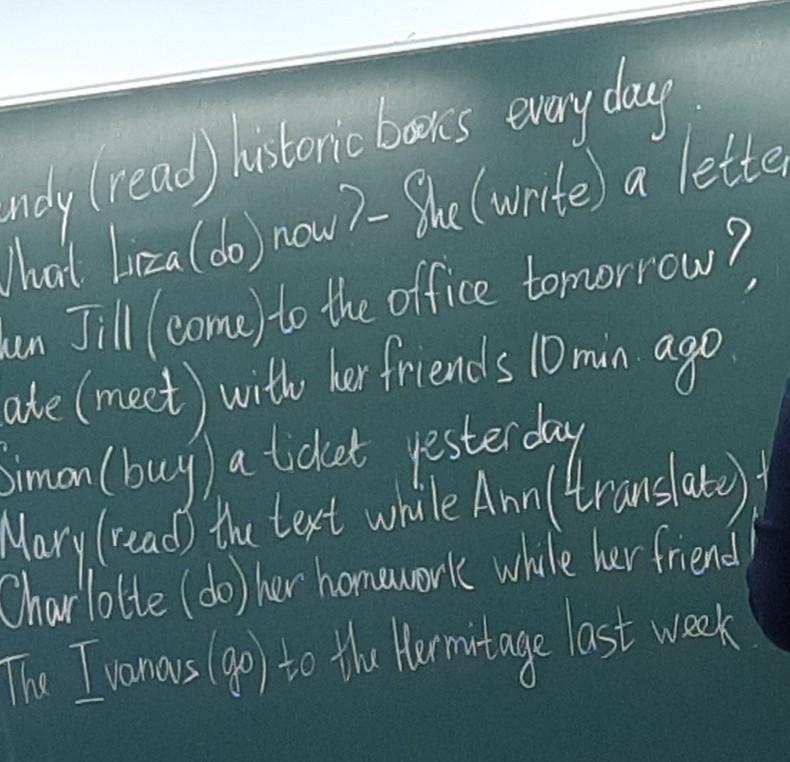 endy (read) historic books every day.
What Liza (do) now? - She (write) a letter
hen Jill (come) to the office tomorrow?
ate (meet) with her friends 10 min. ago.
Simon (buy) a ticket yesterday
Mary (read) the text while Ann (translate)
Charlotte (do) her homework while her friend
The Ivanovs (go) to the Hermitage last week.